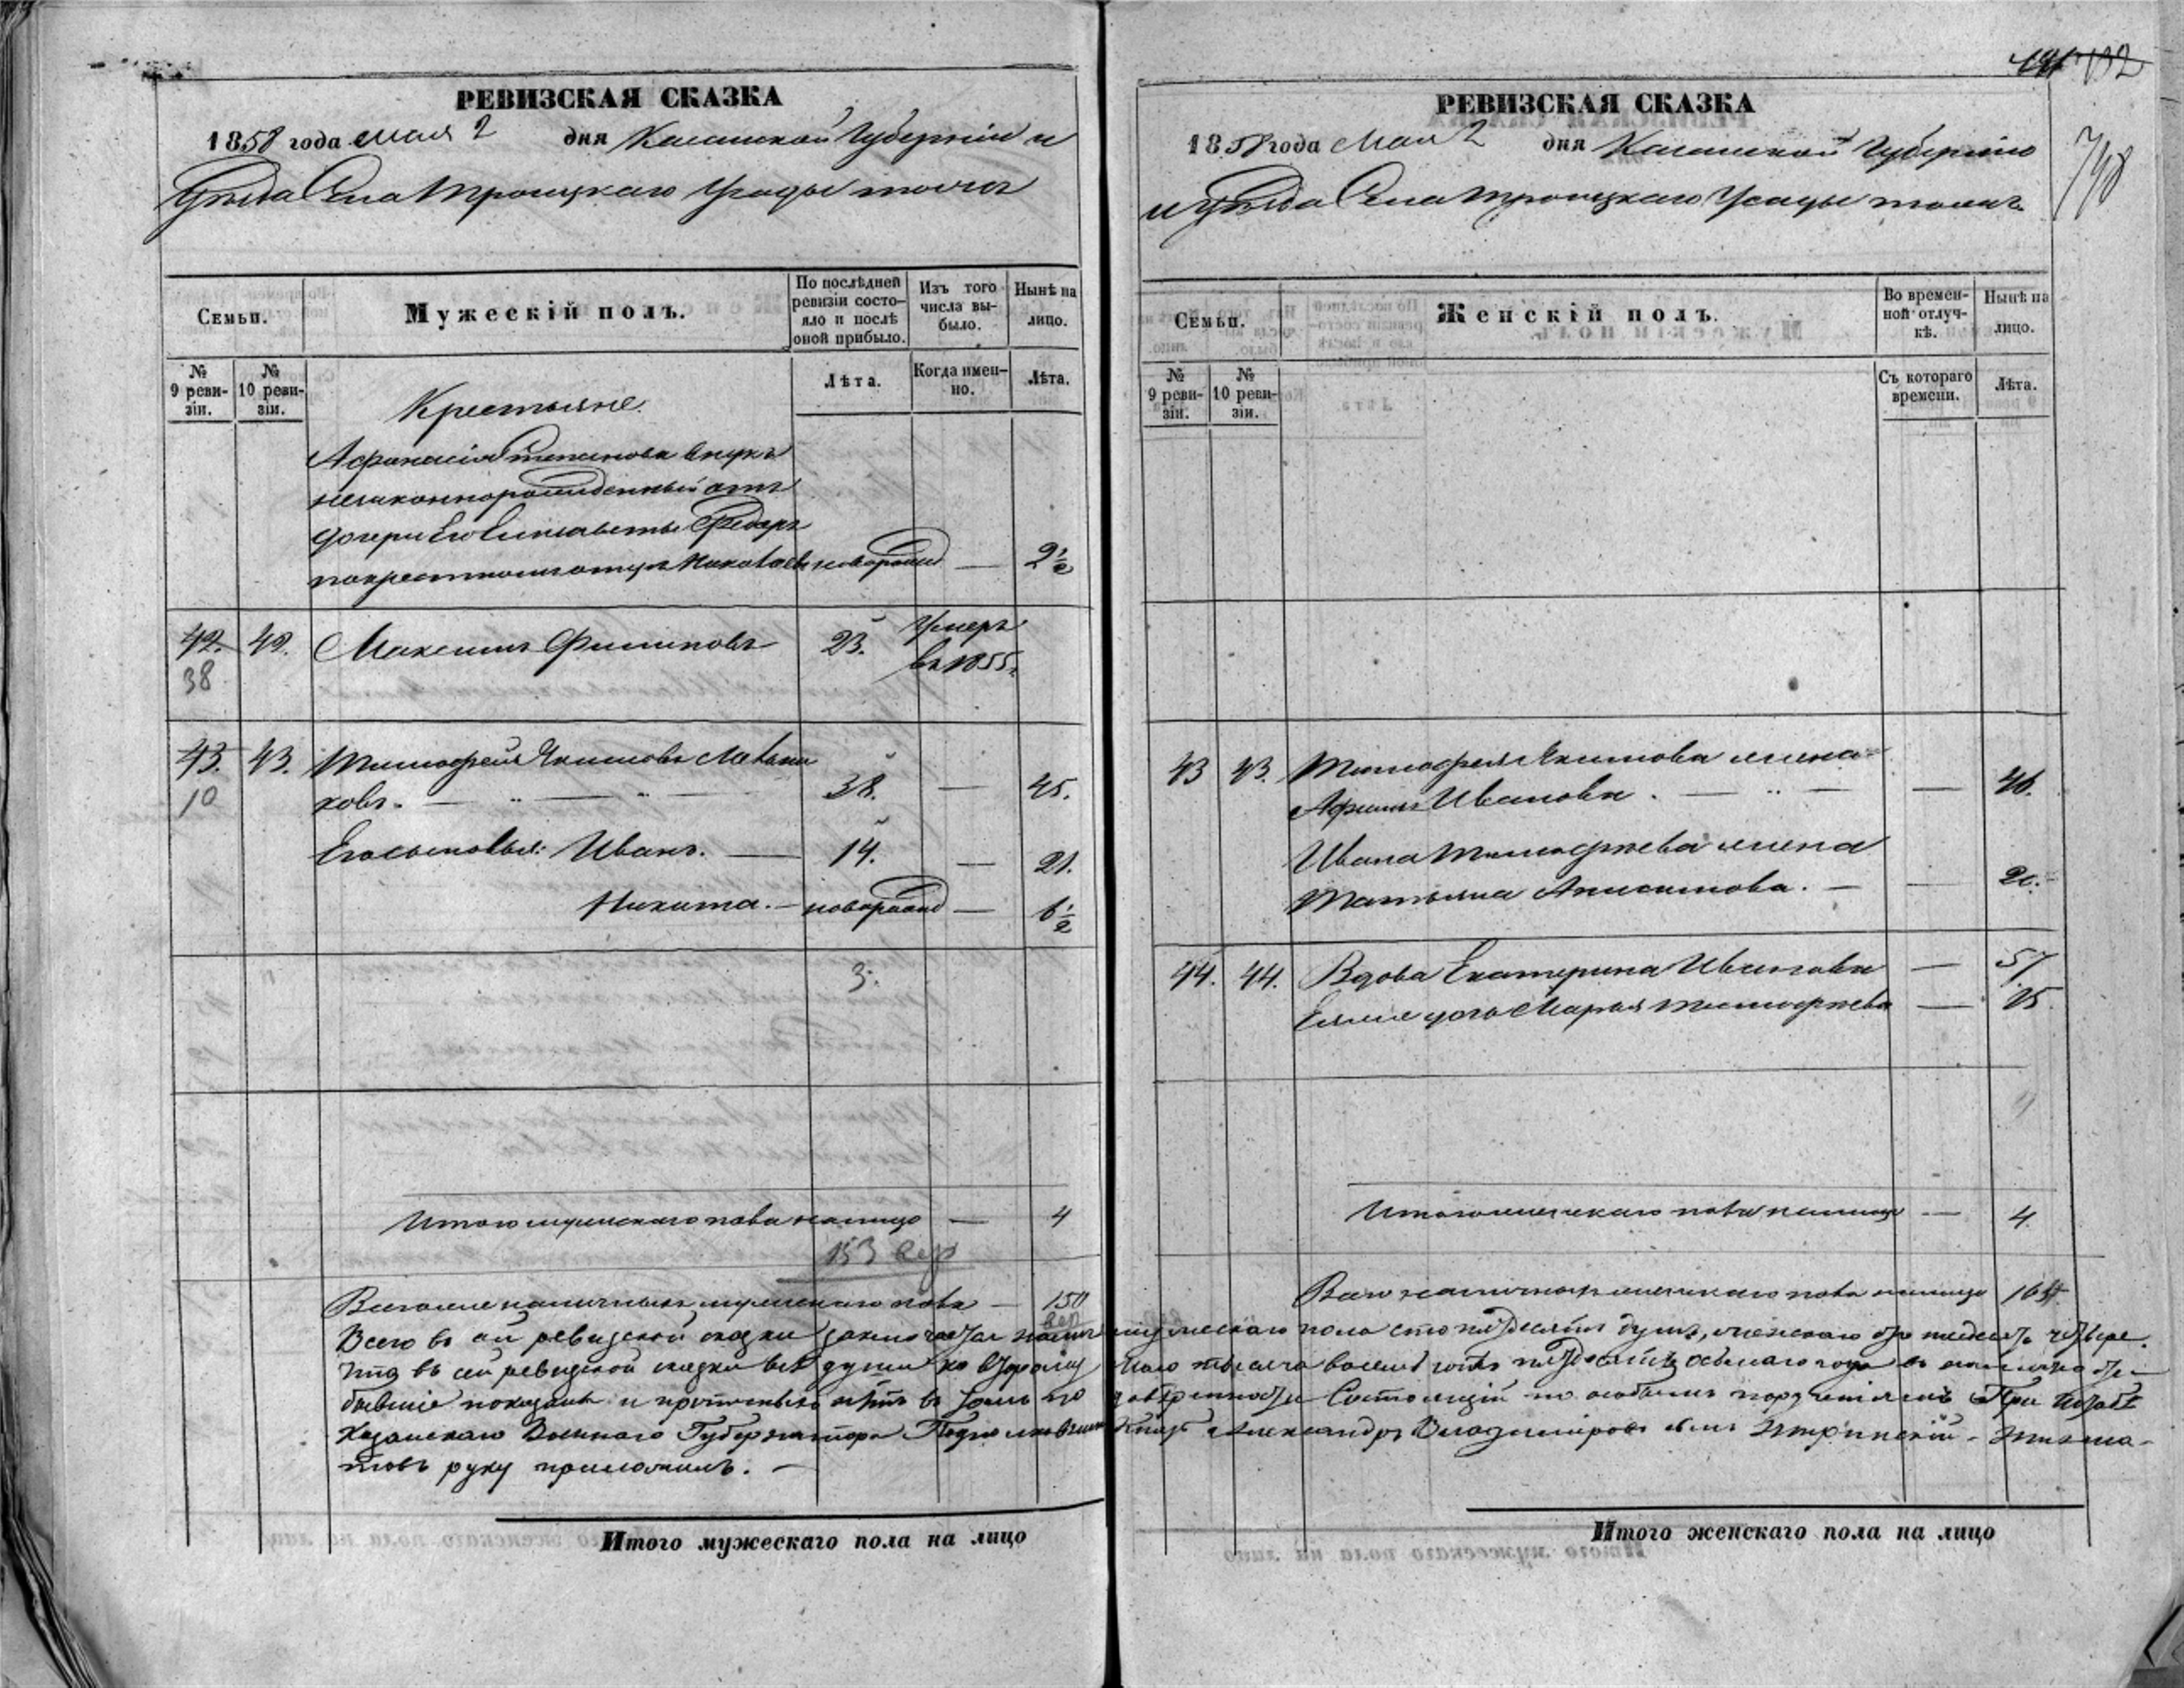 РЕВИЗСКАЯ СКАЗКА
1858 года мая 2 дня Казанской Губерніи и
Уѣзда Села Троицкаго Усады тожъ
Семьи.
Мужескій полъ.
По послѣдней ревизіи состояло и послѣ оной прибыло.
Изъ того числа выбыло.
Нынѣ на лицо.
№ 9 ревизіи.
№ 10 ревизіи.
Лѣта.
Когда именно.
Лѣта.
Крестьяне.
Афанасія Степанова внукъ
незаконнорожденный отъ
дочери Его Елизаветы Федоръ
по крестному отцу Николаевъ новорожд — 2 1/2
42. 42. Максимъ Филиповъ 23. Умеръ
38 въ 1855.
43. 43. Тимофей Якимовъ
10 ковъ. — 38. — 45.
Его сыновья: Иванъ. — 14. — 21.
Никита. — новорожд — 1/2
3.
Итого мужескаго пола налицо — 4
153
Всего же наличныхъ мужескаго пола — 150
Итого мужескаго пола на лицо
132
РЕВИЗСКАЯ СКАЗКА
1858 года Мая 2 дня Казанской Губерніи
и Уѣзда Села Троицкаго Усады тожъ
718
Семьи.
Женскій полъ.
Во временной отлучкѣ.
Нынѣ на лицо.
№ 9 ревизіи.
№ 10 ревизіи.
Съ котораго времени.
Лѣта.
43 43. Тимофея Якимова жена
Ивановна. — — 46.
Ивана Тимофѣева жена
Татьяна Анисимова. — — 20.
44. 44. Вдова Екатерина Иванова — 57.
Ея же дочь Марья Тимофѣева — 15.
Итого женскаго пола налицо — 4.
Всего наличныхъ женскаго пола налицо 164.
Всего въ сей ревизской сказки заключается мужескаго пола сто пятдесятъ душъ, женскаго сто шестдесятъ четыре.
Что въ сей ревизской сказки всѣ души ко второму мая тысяча восемь сотъ пятдесятъ осьмаго года въ
бывшіе показаны и прописныхъ нѣтъ въ томъ по довѣренности Состоящій по особымъ порученіямъ При
Казанскаго Военнаго Губернатора Князь Александръ Владиміровъ сынъ
товъ руку приложилъ. —
Итого женскаго пола на лицо